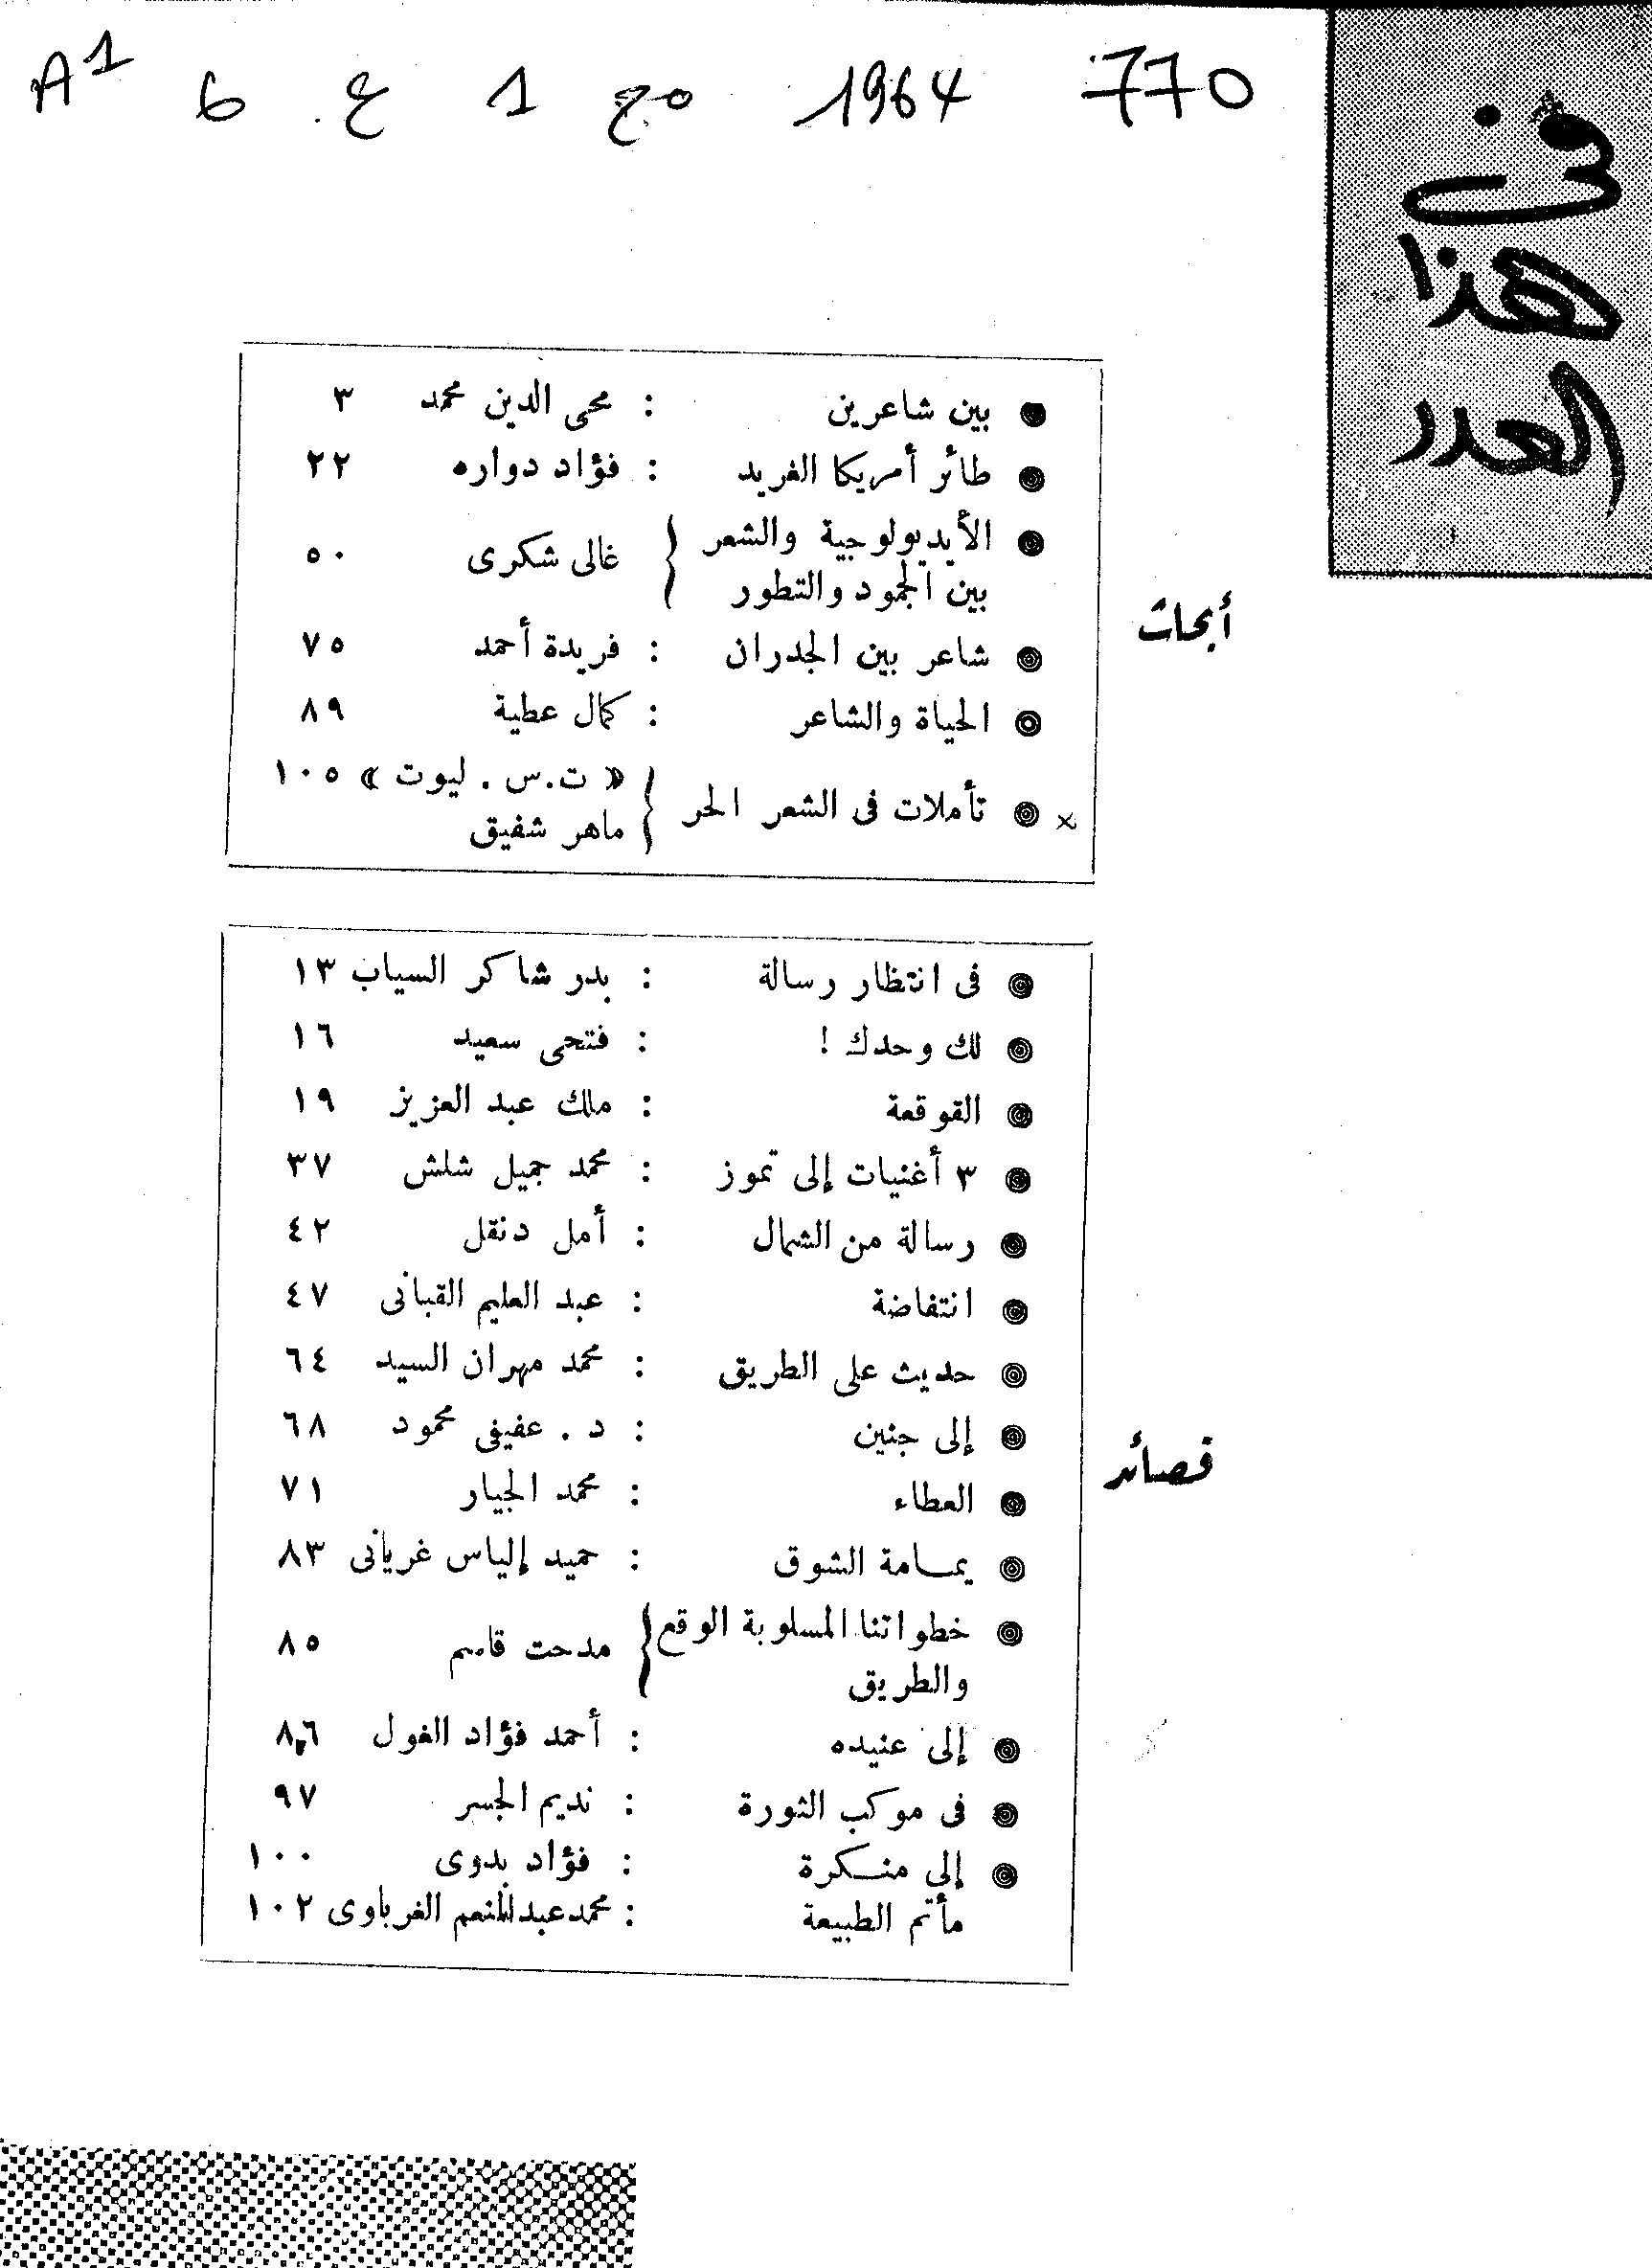 A1 6 ع. 1 مج 1964 770
فى
هذا
العدد
أبحاث
بين شاعرين : محى الدين محمد ٣
طائر أمريكا الغريد : فؤاد دواره ٢٢
الأيديولوجية والشعر
بين الجمود والتطور } غالى شكرى ٥٠
شاعر بين الجدران : فريدة أحمد ٧٥
الحياة والشاعر : كمال عطية ٨٩
× تأملات فى الشعر الحر } « ت.س . ليوت » ١٠٥
ماهر شفيق
قصائد
فى انتظار رسالة : بدر شاكر السياب ١٣
لك وحدك ! : فتحى سعيد ١٦
القوقعة : ملك عبد العزيز ١٩
٣ أغنيات إلى تموز : محمد جميل شلش ٣٧
رسالة من الشمال : أمل دنقل ٤٢
انتفاضة : عبد العليم القبانى ٤٧
حديث على الطريق : محمد مهران السيد ٦٤
إلى جنين : د . عفيفى محمود ٦٨
العطاء : محمد الجيار ٧١
يمامة الشوق : حميد إلياس غريانى ٨٣
خطواتنا المسلوبة الوقع
والطريق } مدحت قاسم ٨٥
إلى عنيده : أحمد فؤاد الغول ٨٦
فى موكب الثورة : نديم الجسر ٩٧
إلى منكرة : فؤاد بدوى ١٠٠
مأتم الطبيعة : محمد عبد المنعم الغرباوى ١٠٢